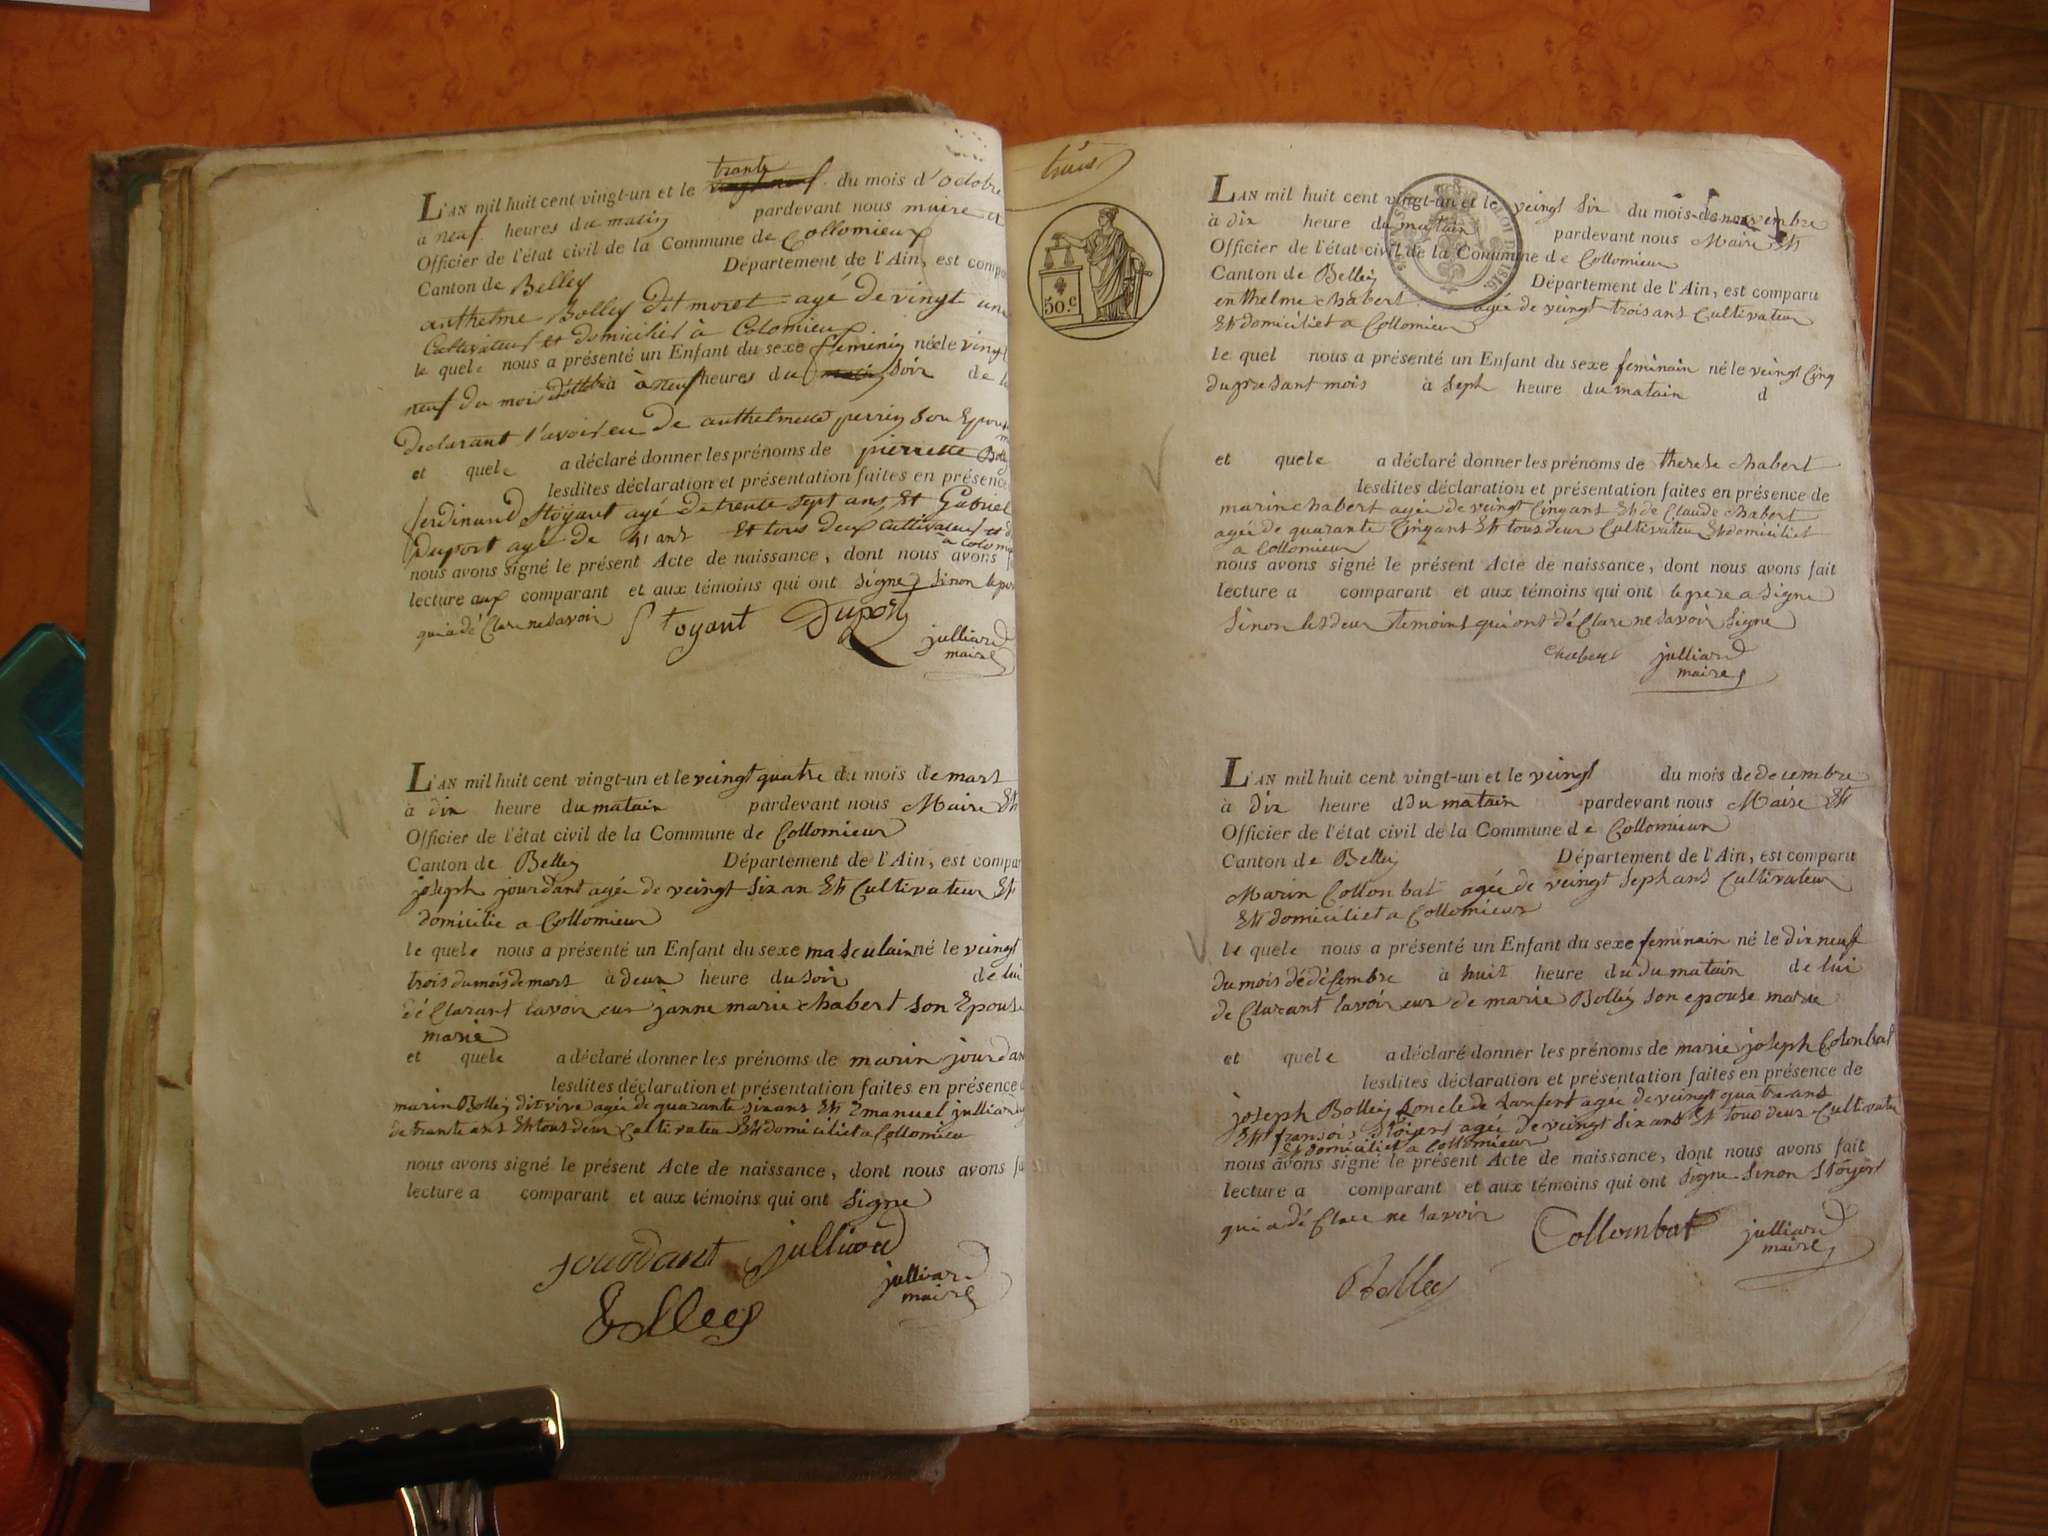 L'AN mil huit cent vingt-un et le trante du mois d'octobre
à neuf heures du matin pardevant nous maire et
Officier de l'état civil de la Commune de Collomieux
Canton de Belley Département de l'Ain, est compa
anthelme Bolley dit moret agé de vingt un
Cultivateur et domicilié à Colomieux
le quele nous a présenté un Enfant du sexe feminin née le vingt
neuf du mois d'octobre à neuf heures du soir de l
Declarant l'avoir eu de anthelmette perrin son Epouse
et quele a déclaré donner les prénoms de pierrette Boll
lesdites déclaration et présentation faites en présence
ferdinand Stoyant agé de trente sept ans et Gabriel
Duport agé de 41 ans Et tous deux cultivateurs et d
a colomi
nous avons signé le présent Acte de naissance, dont nous avons f
lecture aux comparant et aux témoins qui ont signé sinon le per
qui a dé Clare ne savoir Stoyant Duport
julliard
maire
L'AN mil huit cent vingt-un et le veingt quatre du mois de mars
à dix heure du matain pardevant nous Maire Et
Officier de l'état civil de la Commune de Collomieux
Canton de Belley Département de l'Ain, est compar
joseph jourdant agée de veingt six an Et Cultivateur Et
domicilie a Collomieux
le quele nous a présenté un Enfant du sexe masculain né le veingt
trois du mois de mars à deux heure du soir de lui
dé Clarant lavoir eux janne marie chabert son Epouse
marie
et quele a déclaré donner les prénoms de marin jourdan
lesdites déclaration et présentation faites en présence d
marin Bolley dit vive agée de quarante six ans Et Emanuel julliard
de trante ans Et tous deux Cultivateu Et domiciliet a Collomieu
nous avons signé le présent Acte de naissance, dont nous avons fa
lecture a comparant et aux témoins qui ont signe
jourdant julliard
julliard
maire
Bolley
50.c
L'AN mil huit cent vingt-un et le veingt six du mois de novembre
à dix heure du matain pardevant nous Maire Et
Officier de l'état civil de la Commune de Collomieux
Canton de Belley Département de l'Ain, est comparu
enthelme chabert agée de veingt trois ans Cultivateur
Et domiciliet a Collomieux
le quel nous a présenté un Enfant du sexe feminain né le veingt Cinq
du presant mois à sept heure du matain d
et quele a déclaré donner les prénoms de therese chabert
lesdites déclaration et présentation faites en présence de
marin chabert agée de veingt Cinq ans Et de Claude chabert
agée de quarante Cinq ans Et tous deux Cultivateu Et domiciliet
a Collomieux
nous avons signé le présent Acte de naissance, dont nous avons fait
lecture a comparant et aux témoins qui ont le pere a signe
sinon les deux temoins qui ont dé Clare ne savoir signe
chabert julliard
maire
L'AN mil huit cent vingt-un et le veingt du mois de decembre
à dix heure d du matain pardevant nous Maire Et
Officier de l'état civil de la Commune de Collomieux
Canton de Belley Département de l'Ain, est comparu
Marin Collonbat agée de veingt sept ans Cultivateur
Et domiciliet a Collomieux
le quele nous a présenté un Enfant du sexe feminain né le dix neuf
du mois dé décembre à huit heure du du matain de lui
de Clarant lavoir eux de marie Bolley son epouse marie
et quele a déclaré donner les prénoms de marie joseph Colonbat
lesdites déclaration et présentation faites en présence de
joseph Bolley loncle de lanfent agée de veingt quatre ans
Et fransois Stoiert agée de veingt six ans Et tous deux Cultivateu
Et domiciliet a Collomieux
nous avons signé le présent Acte de naissance, dont nous avons fait
lecture a comparant et aux témoins qui ont signe sinon Stoyert
qui a dé Clare ne savoir Collombat julliard
maire
Bolley